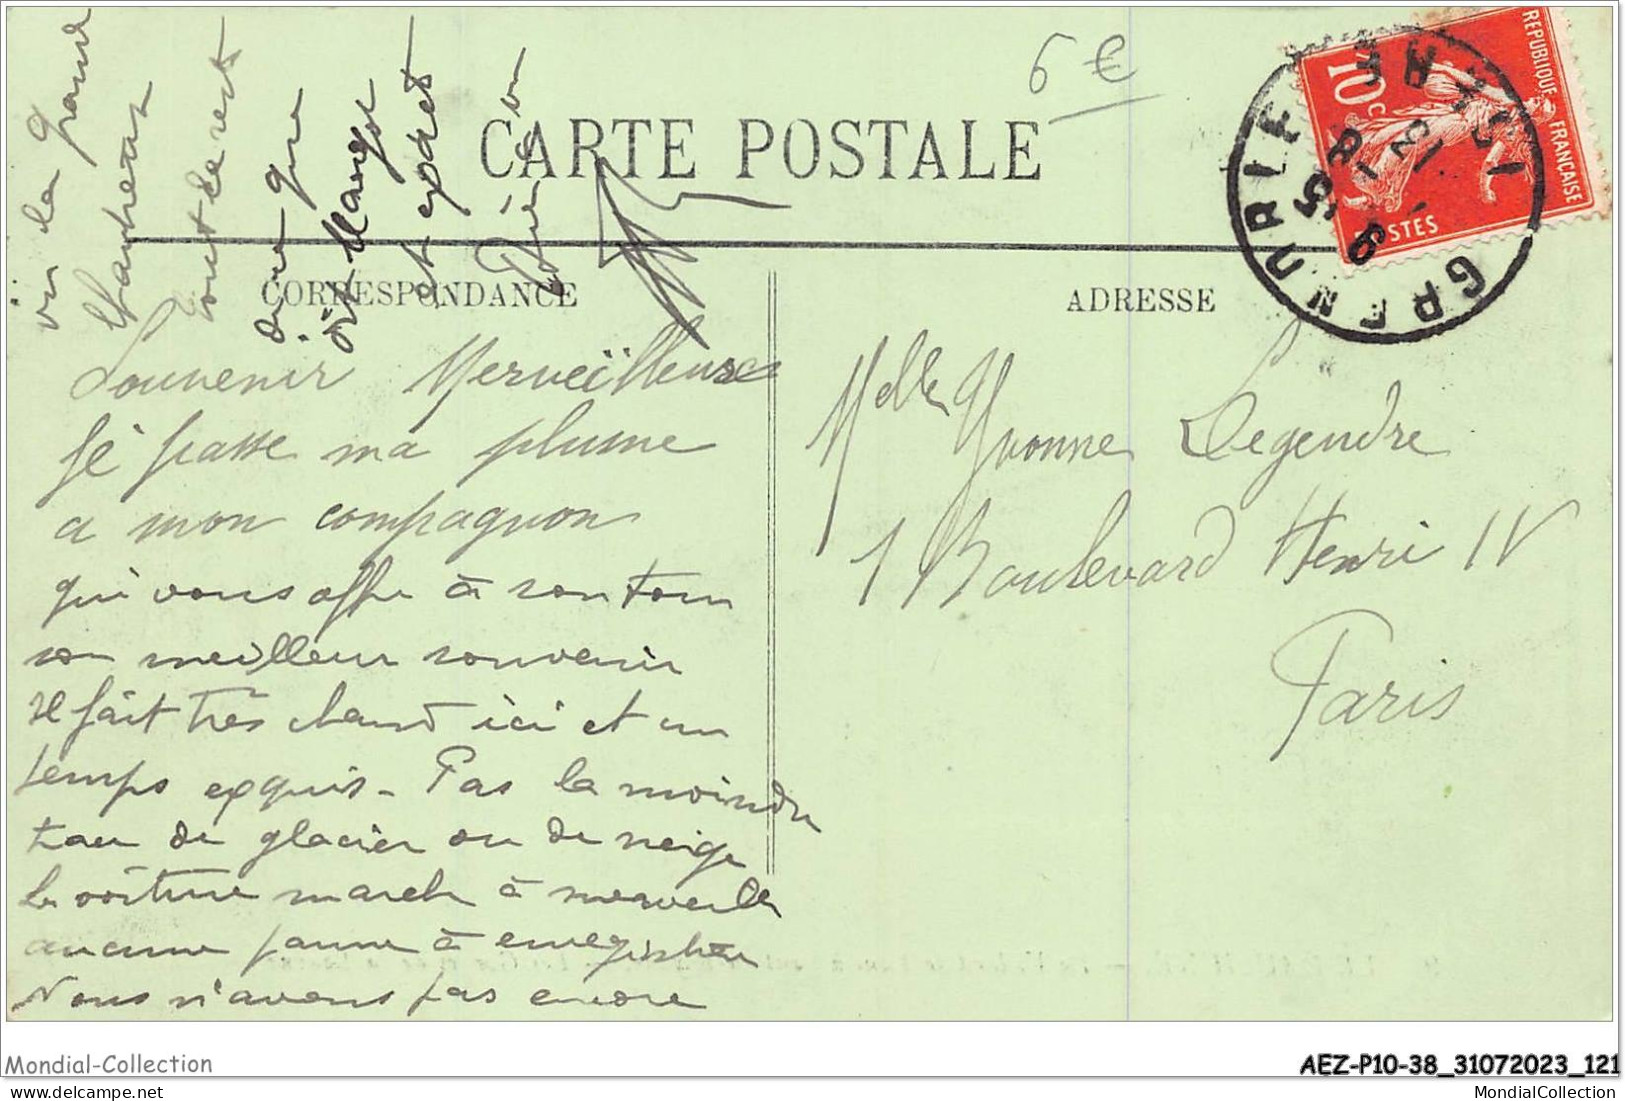 6 €
CARTE POSTALE
CORRESPONDANCE
ADRESSE
RÉPUBLIQUE FRANÇAISE
10c
POSTES
GRENOBLE
ISERE
13 - 8
Souvenir Merveilleuse
Je passe ma plume
a mon compagnon
qui vous offre à son tour
son meilleur souvenir
Il fait très chaud ici et un
temps exquis - Pas la moindre
trace de glacier ou de neige
La voiture marche à merveille
aucune panne à enregistrer
Nous n'avons pas encore
vu la Grande
Chartreuse
tout le reste
dire que
et
Melle Yvonne Legendre
1 Boulevard Henri IV
Paris
Mondial-Collection
AEZ-P10-38_31072023_121
MondialCollection